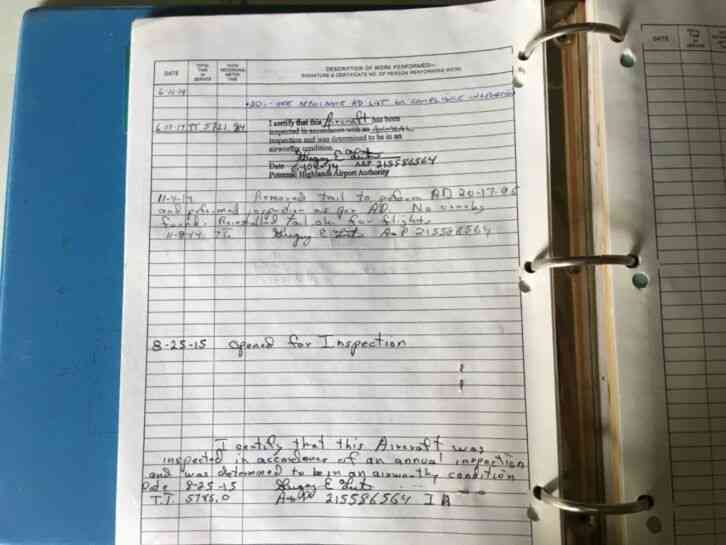 DATE TOTAL TIME IN SERVICE RECORDING METER TIME DESCRIPTION OF WORK PERFORMED—
SIGNATURE & CERTIFICATE NO. OF PERSON PERFORMING WORK
AD LIST
I certify that this Aircraft has been
inspected in accordance with an Annual
inspection and was determined to be in an
airworthy condition.
Date A&P 215586564
Potomac Highlands Airport Authority
Removed tail to perform AD
and performed inspection as per AD. No cracks
found. Reinstalled tail ok for flight.
11-8-14 TT. A&P 215586564
8-25-15 opened for Inspection
I certify that this Aircraft was
inspected in accordance of an annual inspection
and was determined to be in an airworthy condition
Date 8-25-15
T.T. 5785.0 A&P 215586564 IA
DATE